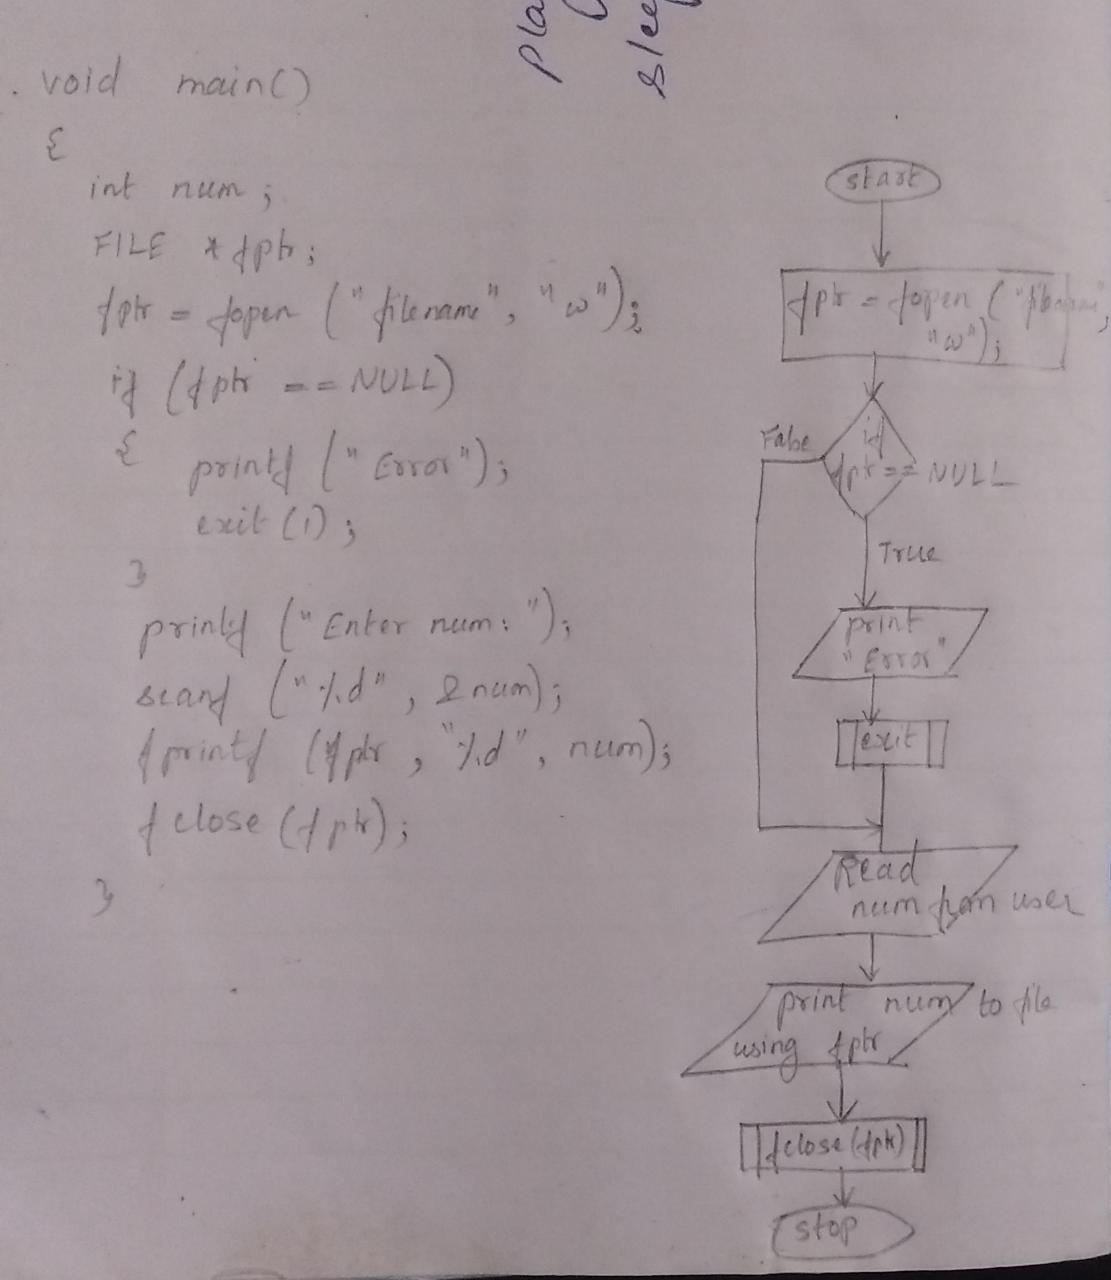 Pla
slee
. void main()
{
int num;
FILE *fptr;
fptr = fopen ("filename", "w");
if (fptr == NULL)
{
printf ("Error");
exit(1);
}
printf ("Enter num: ");
scanf ("%d", &num);
fprintf (fptr, "%d", num);
fclose(fptr);
}
start
fptr = fopen ("filename",
"w");
if
fptr == NULL
False
True
print
"Error"
exit
Read
num from user
print num to file
using fptr
fclose(fptr)
stop